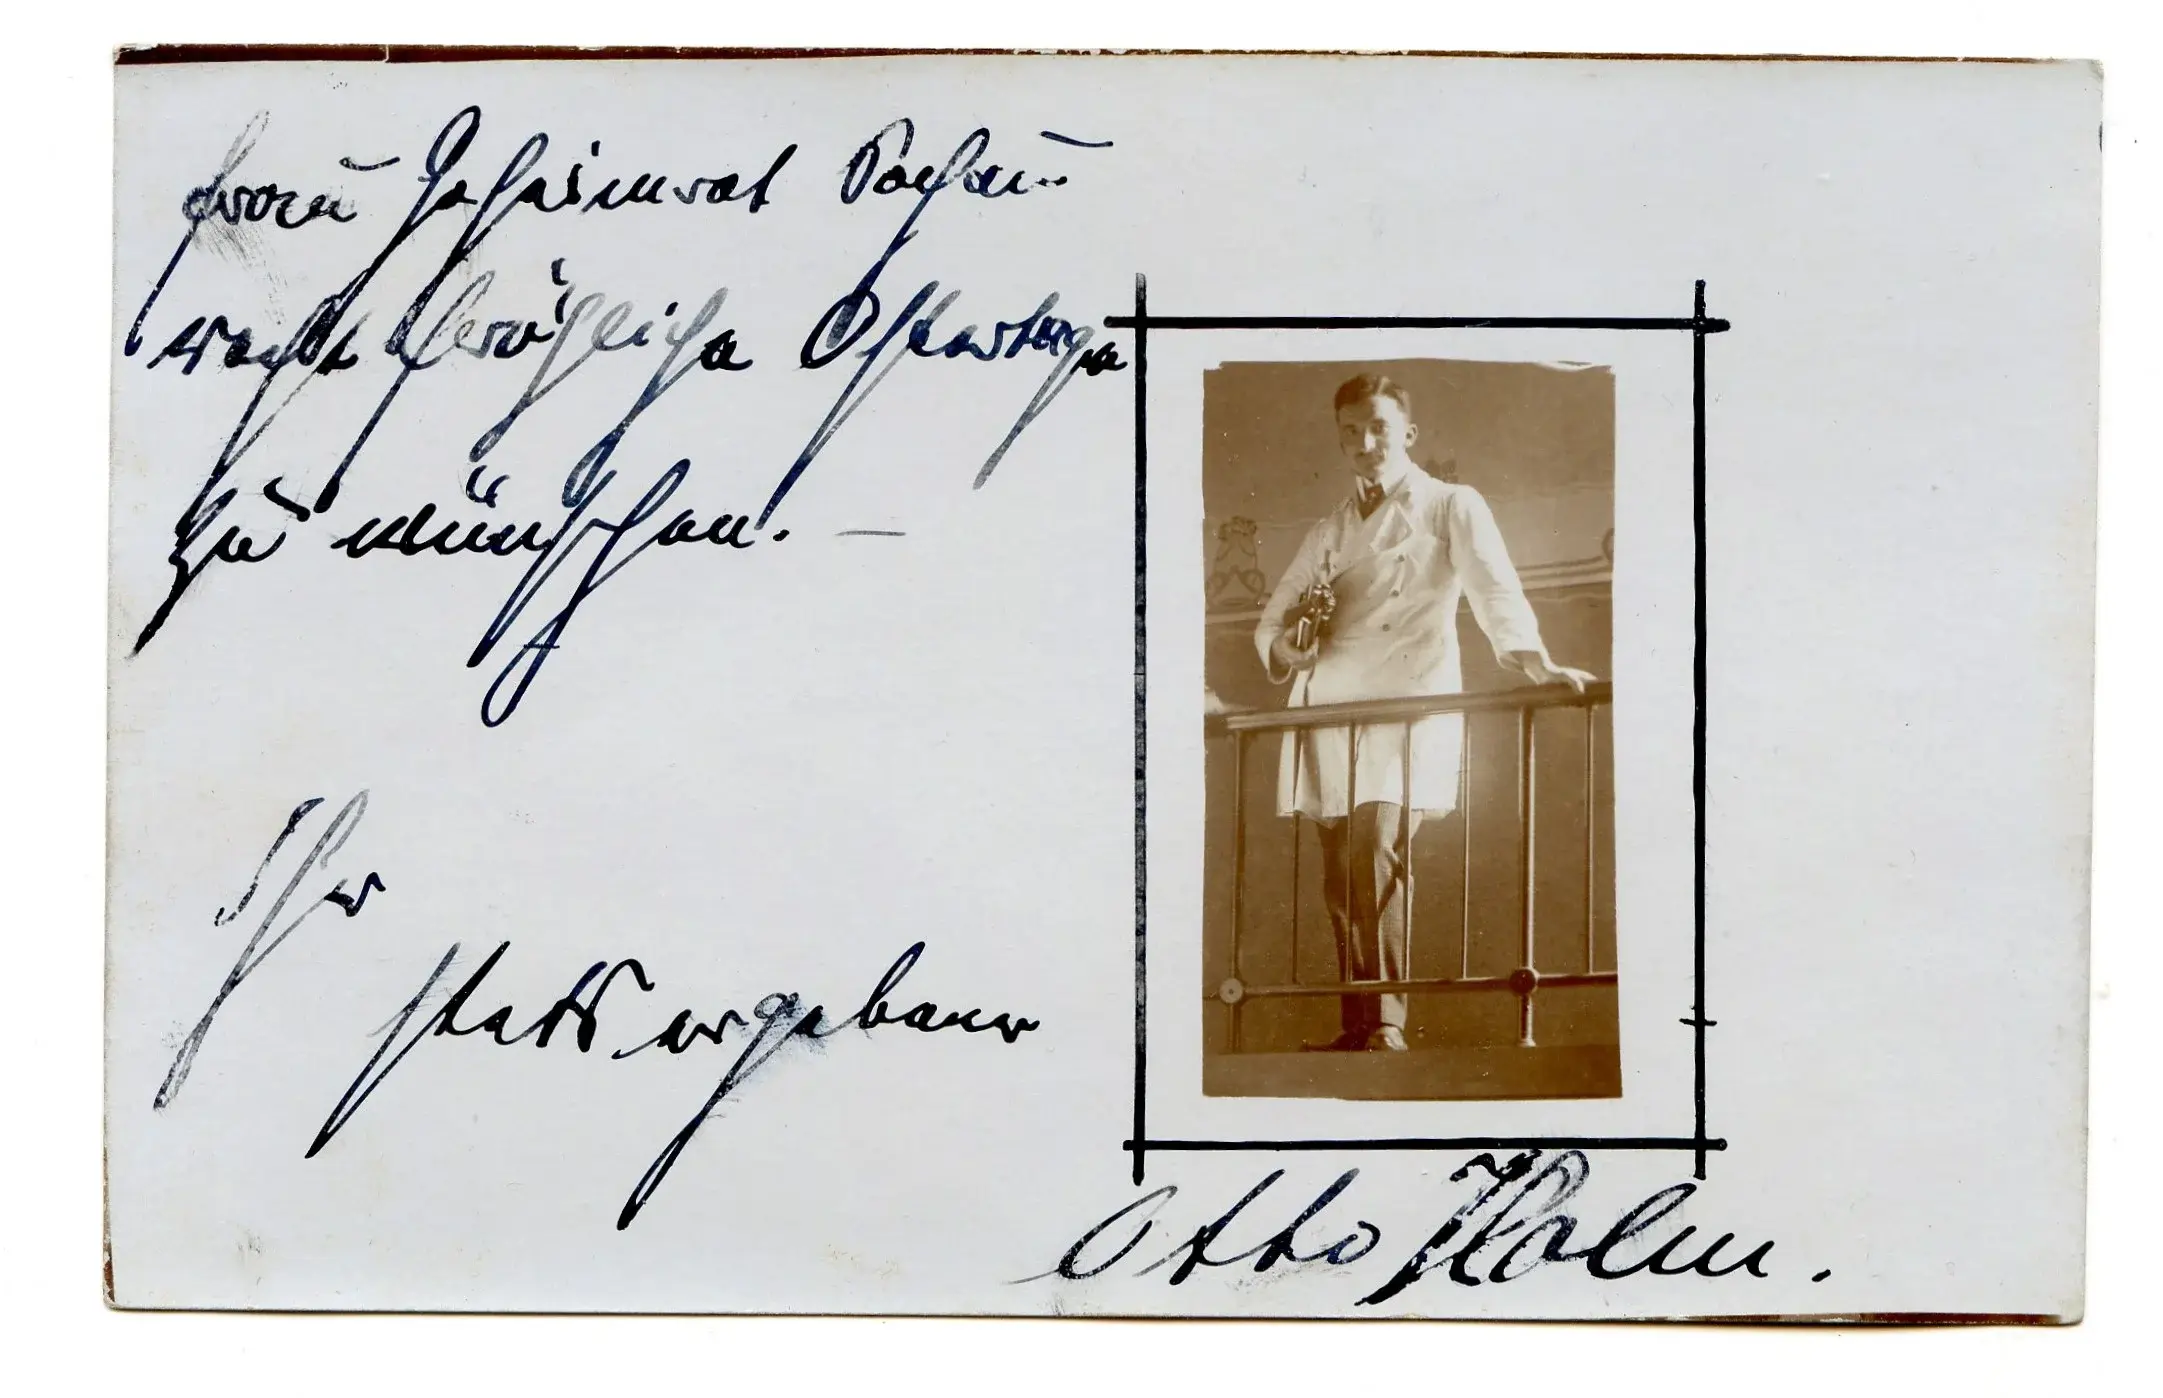 Frau Geheimrat
recht fröhliche Ostertage
zu wünschen. —
Ihr
stets ergebener
Otto Holm.